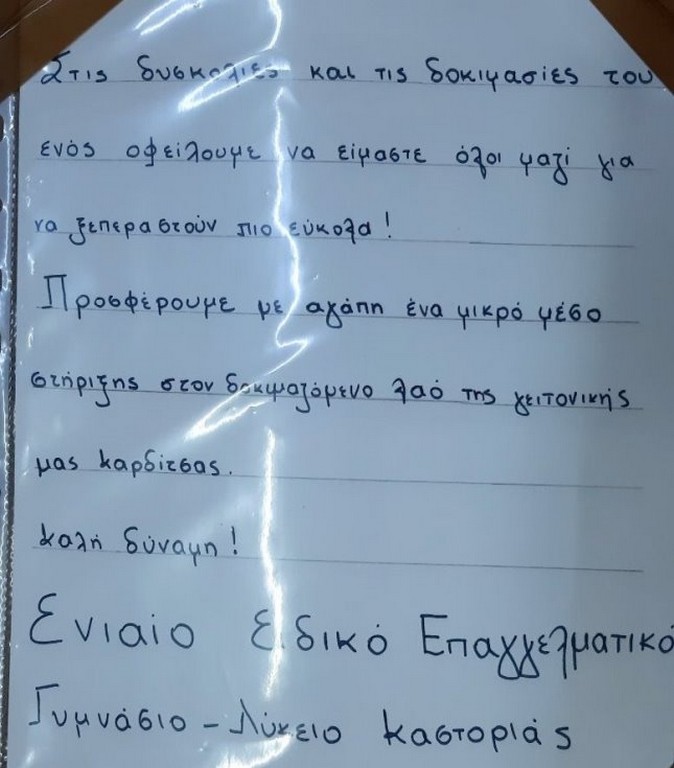 Στις δυσκολίες και τις δοκιμασίες του
ενός οφείλουμε να είμαστε όλοι μαζί για
να ξεπεραστούν πιο εύκολα!
Προσφέρουμε με αγάπη ένα μικρό μέσο
στήριξης στον δοκιμαζόμενο λαό της γειτονικής
μας καρδίτσας.
Καλή δύναμη!
Ενιαίο Ειδικό Επαγγελματικό
Γυμνάσιο - Λύκειο Καστοριάς